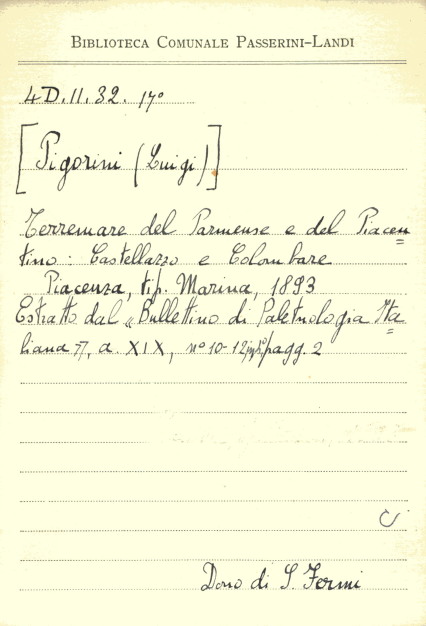 BIBLIOTECA COMUNALE PASSERINI-LANDI
4D.II.32. 17º
[Pigorini (Luigi)]
Terremare del Parmense e del Piacen=
tino: Castellazzo e Colombare
Piacenza, tip. Marina, 1893
Estratto dal "Bullettino di Paletnologia Ita=
liana", a. XIX, nº 10-12, pagg. 2
Dono di S. Fermi